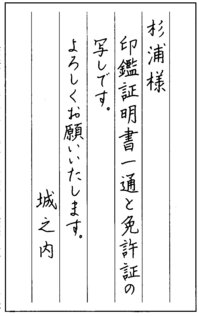 杉浦様
印鑑証明書一通と免許証の
写しです。
よろしくお願いいたします。
城之内